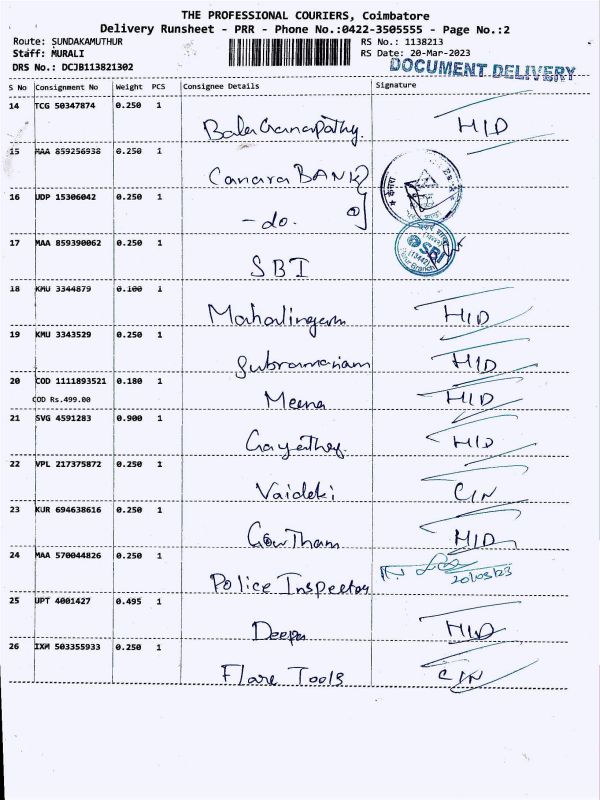 THE PROFESSIONAL COURIERS, Coimbatore
Delivery Runsheet - PRR - Phone No.:0422-3505555 - Page No.:2
Route: SUNDAKAMUTHUR RS No.: 1138213
Staff: MURALI RS Date: 20-Mar-2023
DRS No.: DCJB113821302 DOCUMENT DELIVERY
S No Consignment No Weight PCS Consignee Details Signature
14 TCG 50347874 0.250 1
BalaGanapathy. HID
15 MAA 859256938 0.250 1
Canara BANK
16 UDP 15306042 0.250 1
-do.
17 MAA 859390062 0.250 1
SBI SBI
(13442)
Branch
18 KMU 3344879 0.100 1
Mahalingam HID
19 KMU 3343529 0.250 1
Subramaniam HID
20 COD 1111893521 0.180 1
COD Rs.499.00
Meena HID
21 SVG 4591283 0.900 1
Gayathry. HID
22 VPL 217375872 0.250 1
Vaideki CIN
23 KUR 694638616 0.250 1
Gowtham HID
24 MAA 570044826 0.250 1
Police Inspector 20/03/23
25 UPT 4001427 0.495 1
Deepa HID
26 IXM 503355933 0.250 1
Flare Tools CIN